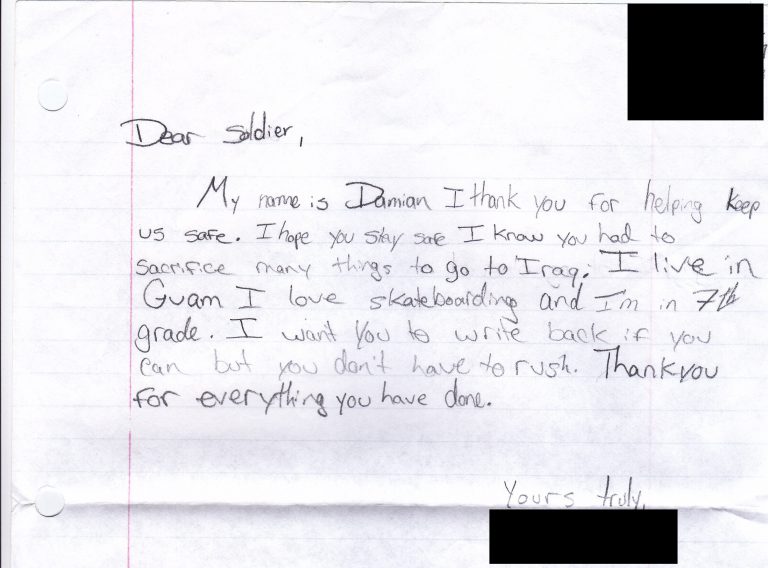 Dear Soldier,
My name is Damian I thank you for helping keep
us safe. I hope you stay safe I know you had to
sacrifice many things to go to Iraq. I live in
Guam I love skateboarding and I'm in 7th
grade. I want you to write back if you
can but you don't have to rush. Thank you
for everything you have done.
Yours truly,